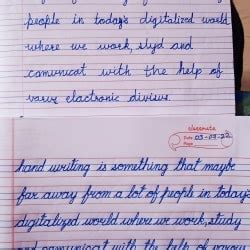 people in today's digitalized world
where we work, styd and
comunicat with the help of
varius electronic divises.
classmate
Date 03-07-22
Page
hand writing is something that maybe
far away from a lot of people in today's
digitalized world where we work, study
and comunicat with the help of varius